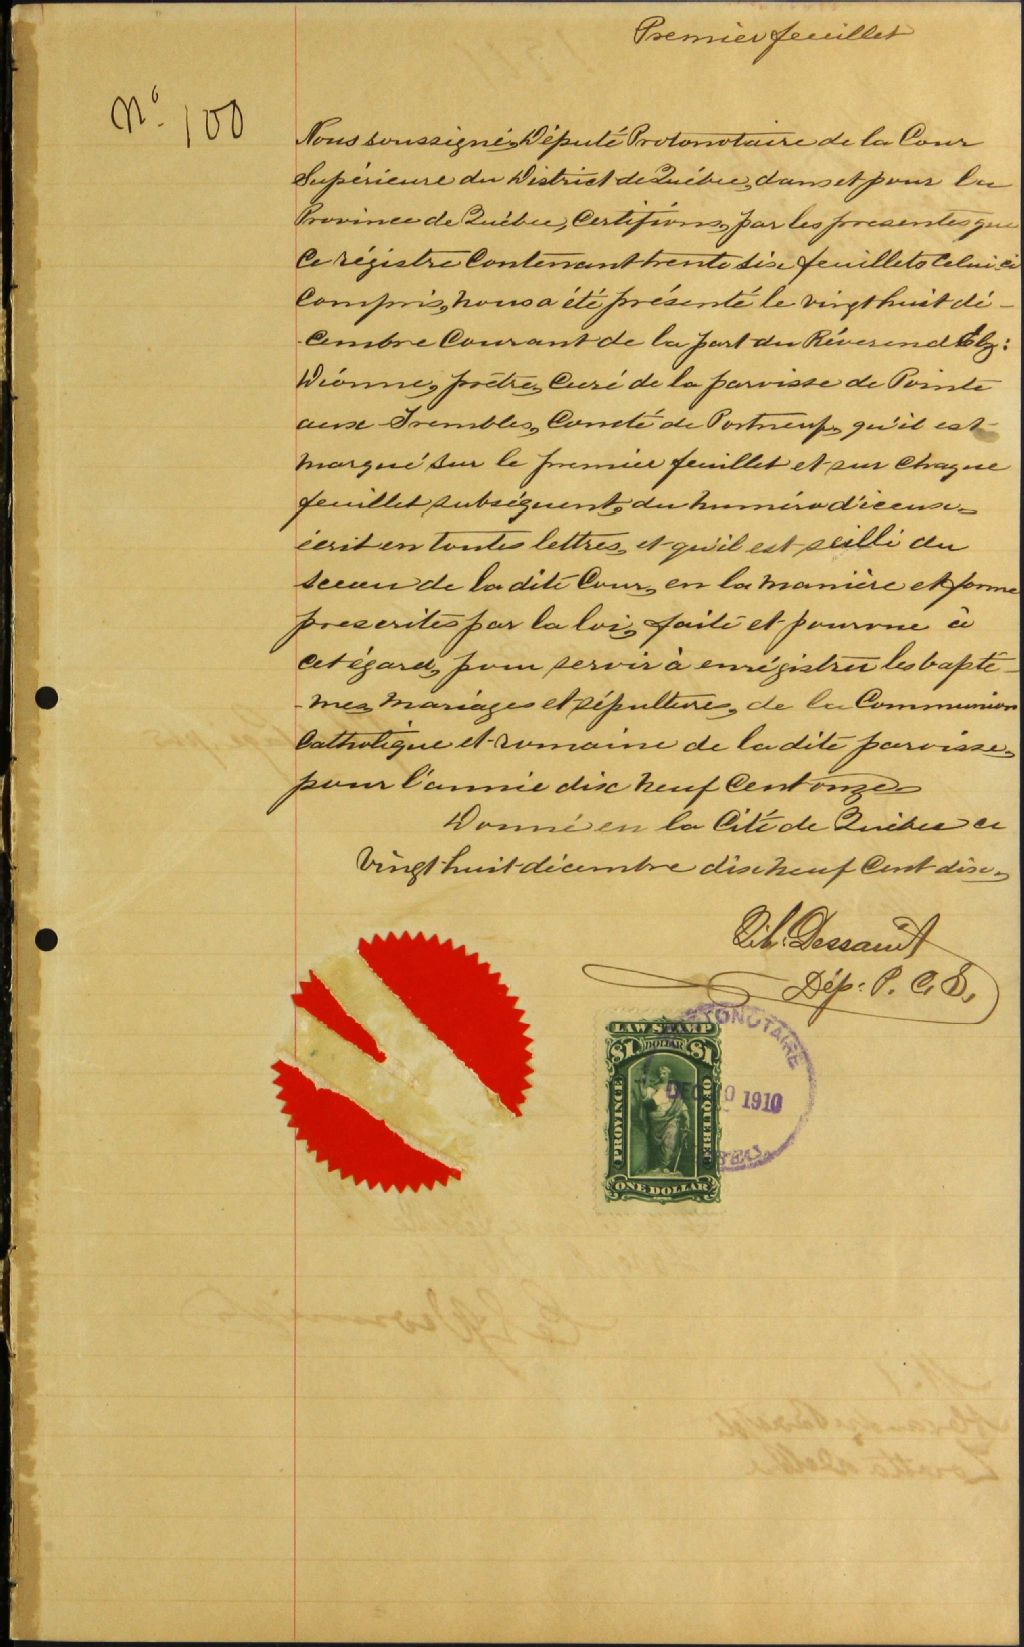 Premier feuillet
No. 100
Nous soussigné, Député Protonotaire de la Cour
Supérieure du District de Québec, dans et pour la
Province de Québec, Certifions, par les presentes que
Ce régistre Contenant trente six feuillets Celui ci
Compris, nous a été présenté le vingt huit dé-
-cembre Courant de la part du Révérend Elz:
Dionne, prêtre, Curé de la paroisse de Pointe
aux Trembles, Comté de Portneuf, qu'il est
marqué sur le premier feuillet et sur chaque
feuillet subséquent, du numéro d'iceux,
écrit en toutes lettres, et qu'il est scellé du
sceau de la dite Cour, en la manière et forme
prescrites par la loi, faite et pourvue à
cet égard, pour servir à enrégistrer les baptê-
-mes, mariages et sépultures, de la Communion
Catholique et romaine de la dite paroisse,
pour l'année dix neuf Cent onze
Donné en la Cité de Québec ce
Vingt huit décembre dix neuf Cent dix,
Dessault
Dép. P. C. S.
LAW STAMP
$1 DOLLAR $1
PROVINCE OF QUEBEC
ONE DOLLAR
PROTONOTAIRE
DEC 1910